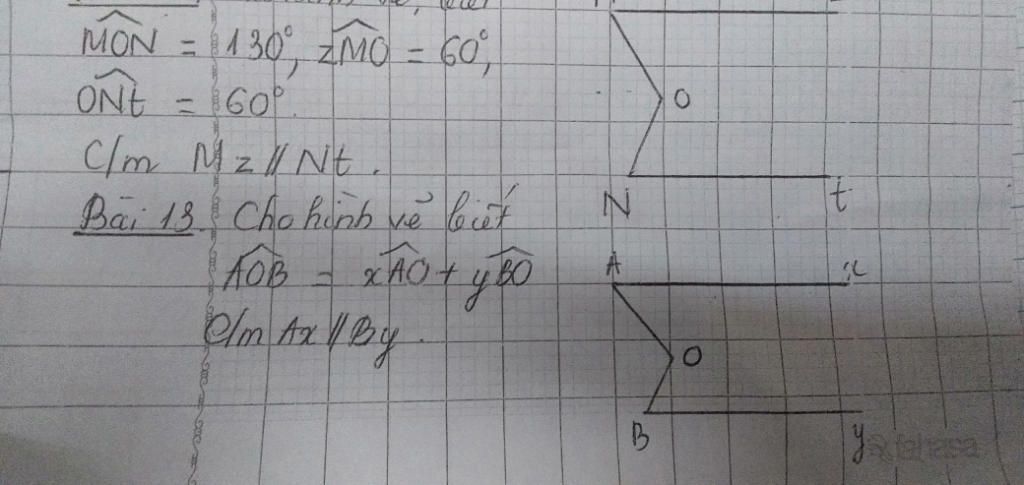 MON = 130°, zMO = 60°,
ONt = 60°.
C/m Mz // Nt.
Bài 13. Cho hình vẽ biết
AOB = xAO + yBO
C/m Ax // By.
O
N
t
A
x
O
B
y
fahasa